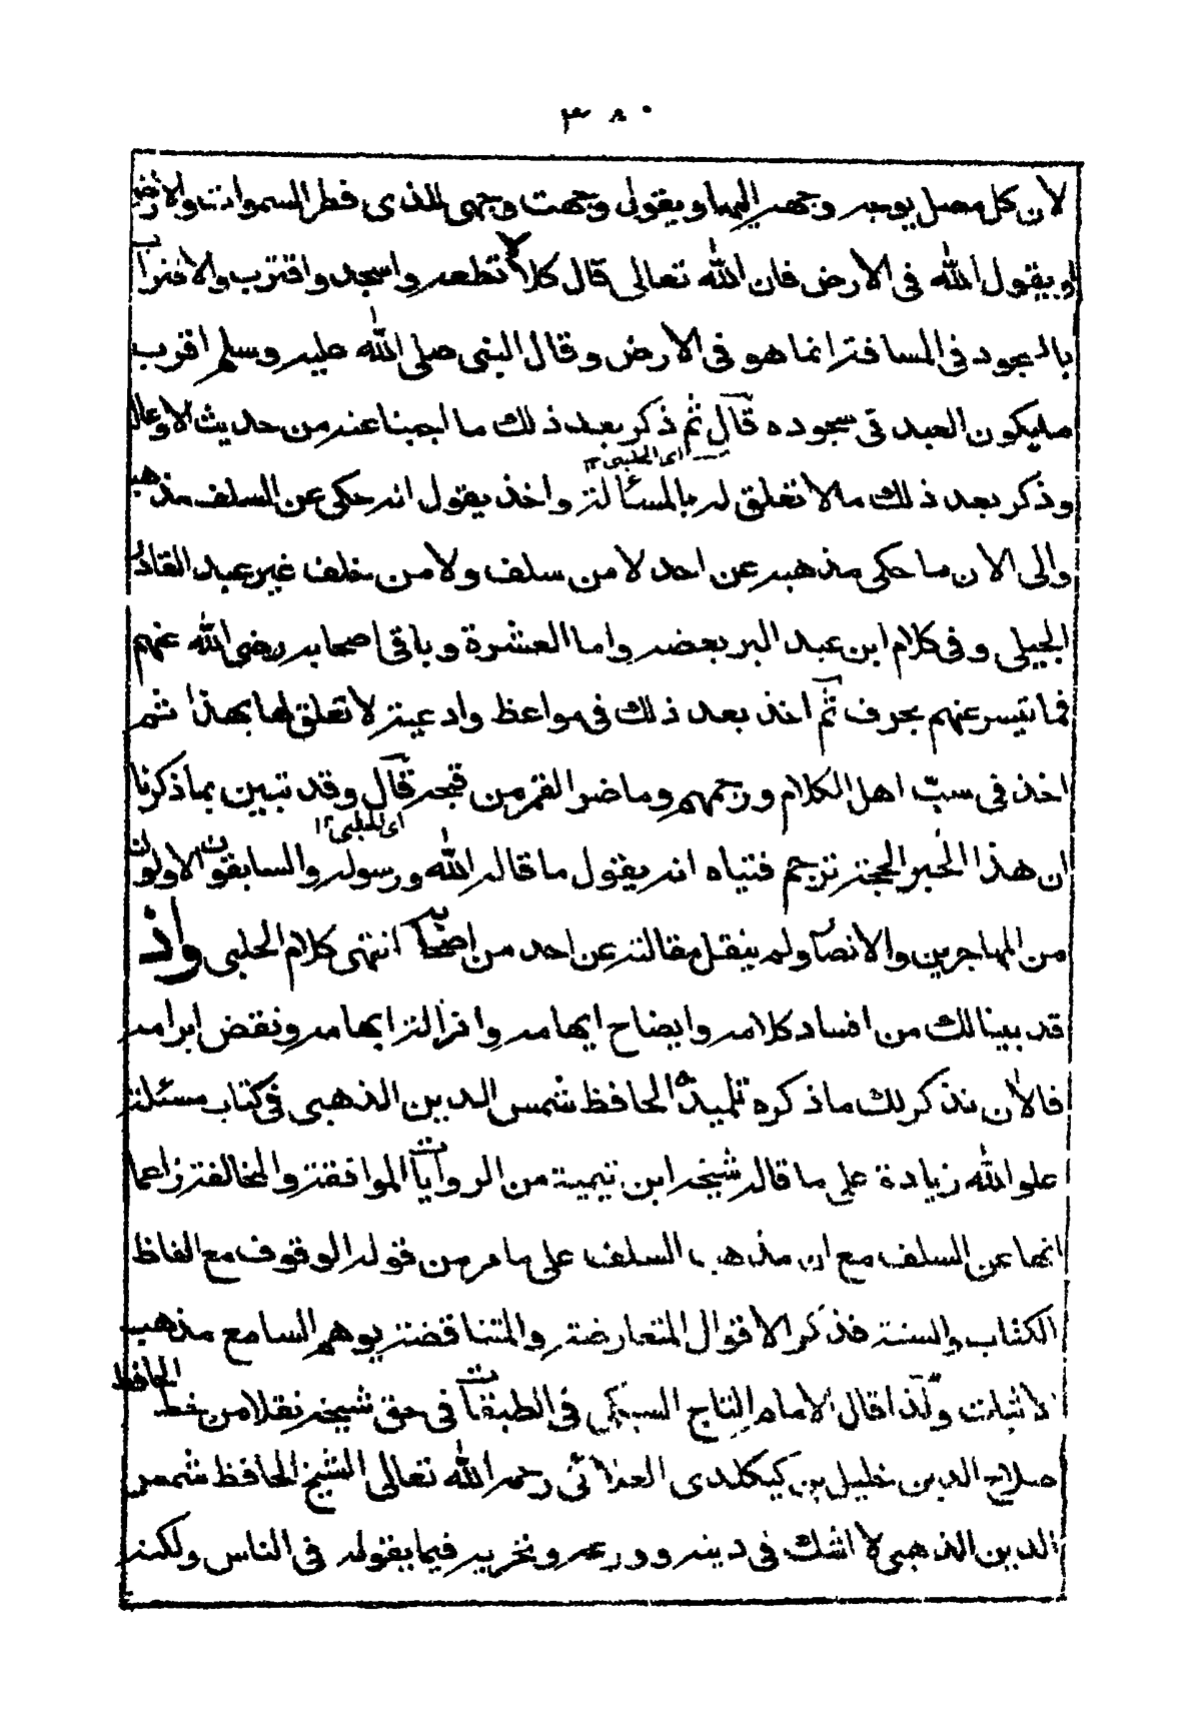 ٣٨٠
لان كل مصل يوجه وجهه اليهما ويقول وجهت وجهى للذى فطر السموات والارض
او يقول الله فى الارض فان الله تعالى قال كلا لا تطعه واسجد واقترب والاقتراب
بالسجود فى المسافة انما هو فى الارض وقال النبى صلى الله عليه وسلم اقرب
مايكون العبد فى سجوده قال ثم ذكر بعد ذلك ما اجبنا عنه من حديث الاوعال
اى الحلبى ١٢
وذكر بعد ذلك مالا تعلق له بالمسئالة واخذ يقول انه حكى عن السلف مذهبه
والى الان ما حكى مذهبه عن احد لا من سلف ولا من خلف غير عبد القادر
الجيلى وفى كلام ابن عبد البر بعضه واما العشرة وباقى اصحابه رضى الله عنهم
فما تيسر عنهم بحرف ثم اخذ بعد ذلك فى مواعظ وادعية لا تعلق لها بهذا ثم
اخذ فى سب اهل الكلام ورجمهم وما ضر القمر من قبحه قال وقد تبين بما ذكرنا
اى الحلبى ١٢
ان هذا الخبر الحجة ترجم فتياه انه يقول ما قاله الله ورسوله والسابقون الاولون
من المهاجرين والانصار ولم ينقل مقالته عن احد من اصحابه انتهى كلام الحلبى واذ
قد بينا لك من افساد كلامه وايضاح ايهامه وازالة ابهامه ونقض ابرامه
فالان نذكر لك ماذكره تلميذه الحافظ شمس الدين الذهبى فى كتاب مسئلة
علو الله زيادة على ما قاله شيخه ابن تيمية من الروايات الموافقة والمخالفة زاعما
انها عن السلف مع ان مذهب السلف على مامر من قوله الوقوف مع الفاظ
الكتاب والسنة فذكر الاقوال المتعارضة والمتناقضة يوهم السامع مذهب
الاثبات ولذا قال الامام التاج السبكى فى الطبقات فى حق شيخه نقلا من خط الحافظ
صلاح الدين خليل بن كيكلدى العلائى رحمه الله تعالى الشيخ الحافظ شمس
الدين الذهبى لا اشك فى دينه وورعه وتحريه فيما يقوله فى الناس ولكنه